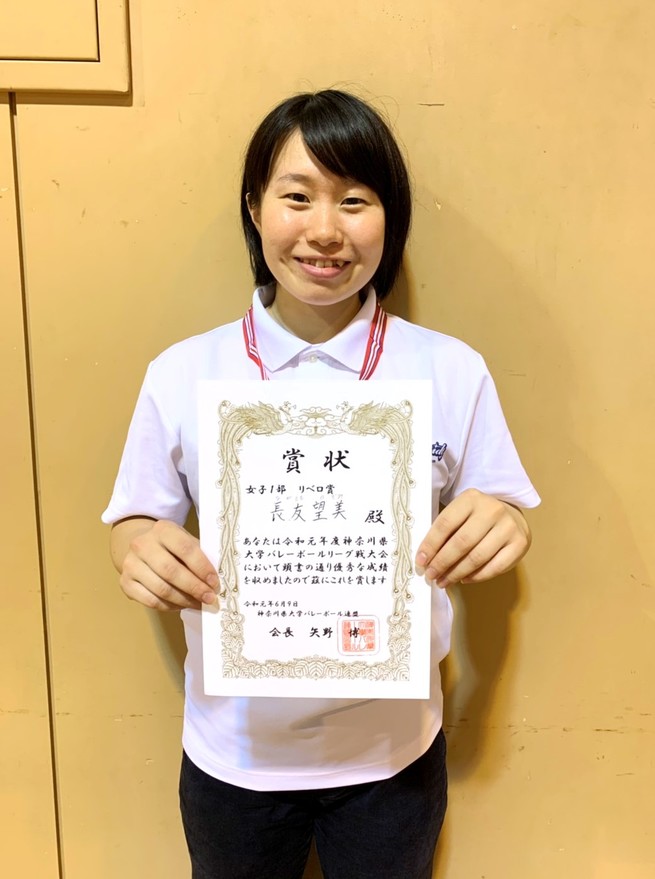 賞状
女子1部 リベロ賞
長友望美 殿
あなたは令和元年度神奈川県
大学バレーボールリーグ戦大会
において頭書の通り優秀な成績
を収めましたので茲にこれを賞します
令和元年6月9日
神奈川県大学バレーボール連盟
会長 矢野 博